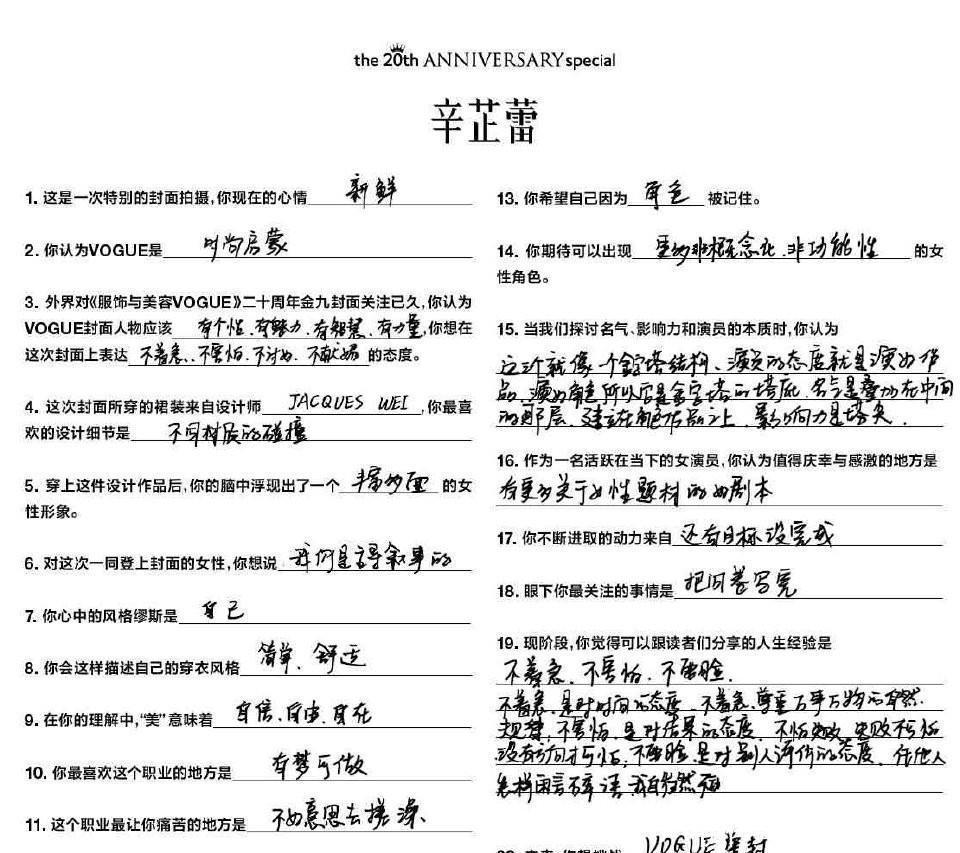 the 20th ANNIVERSARY special
辛芷蕾
1. 这是一次特别的封面拍摄,你现在的心情 新鲜
2. 你认为VOGUE是 时尚启蒙
3. 外界对《服饰与美容VOGUE》二十周年金九封面关注已久,你认为
VOGUE封面人物应该 有个性、有魅力、有智慧、有力量,你想在
这次封面上表达 不着急、不害怕、不讨好、不献媚 的态度。
4. 这次封面所穿的裙装来自设计师 JACQUES WEI ,你最喜
欢的设计细节是 不同材质的碰撞
5. 穿上这件设计作品后,你的脑中浮现出了一个 丰富多面 的女
性形象。
6. 对这次一同登上封面的女性,你想说 我们是主导叙事的
7. 你心中的风格缪斯是 自己
8. 你会这样描述自己的穿衣风格 简单、舒适
9. 在你的理解中,“美”意味着 自信、自由、自在
10. 你最喜欢这个职业的地方是 有梦可做
11. 这个职业最让你痛苦的地方是 不好意思去搓澡、
13. 你希望自己因为 角色 被记住。
14. 你期待可以出现 更多非概念化、非功能性 的女
性角色。
15. 当我们探讨名气、影响力和演员的本质时,你认为
这三个就像一个金字塔结构、演员的态度就是演好作
品、演好角色所以它是金字塔的塔底、名气是叠加在中间
的那层、建立在角色作品之上、影响力是塔尖.
16. 作为一名活跃在当下的女演员,你认为值得庆幸与感激的地方是
有更多关于女性题材的好剧本
17. 你不断进取的动力来自 还有目标没完成
18. 眼下你最关注的事情是 把问卷写完
19. 现阶段,你觉得可以跟读者们分享的人生经验是
不着急、不害怕、不要脸.
不着急、是对时间的态度、不着急、尊重万事万物的自然
规律,不害怕、是对结果的态度、不怕失败、失败不可怕
没有方向才可怕,不要脸、是对别人评价的态度、任他人
怎样闲言碎语 我自岿然不动
VOGUE 单封